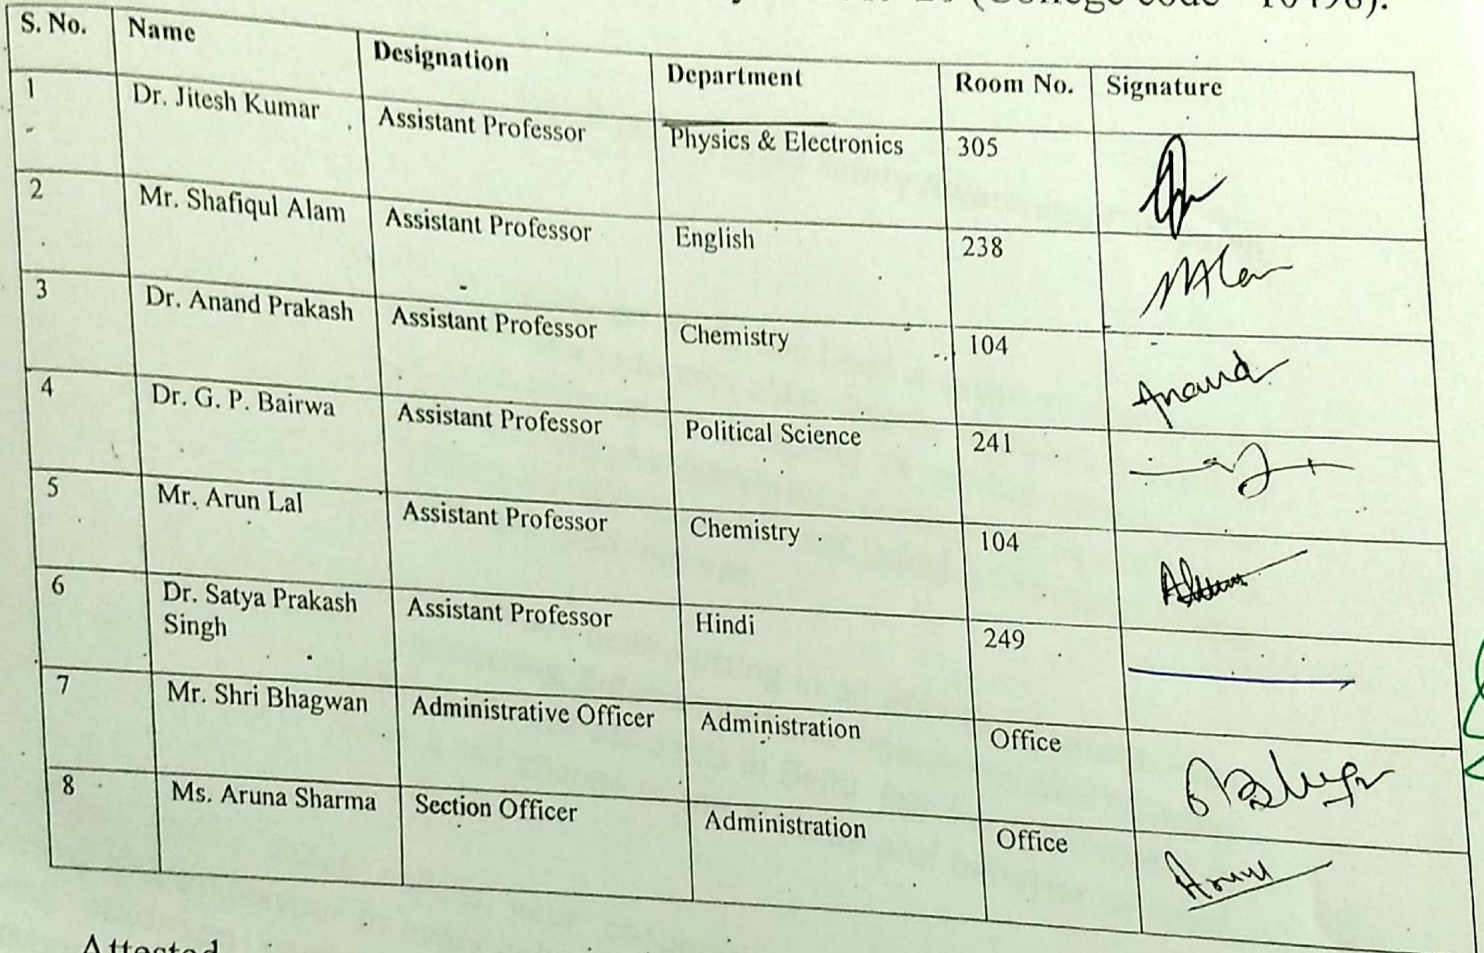 (College code - 10498).
S. No. Name Designation Department Room No. Signature
1 Dr. Jitesh Kumar Assistant Professor Physics & Electronics 305
2 Mr. Shafiqul Alam Assistant Professor English 238
3 Dr. Anand Prakash Assistant Professor Chemistry 104 Anand
4 Dr. G. P. Bairwa Assistant Professor Political Science 241
5 Mr. Arun Lal Assistant Professor Chemistry 104
6 Dr. Satya Prakash Assistant Professor Hindi 249
Singh
7 Mr. Shri Bhagwan Administrative Officer Administration Office
8 Ms. Aruna Sharma Section Officer Administration Office
Attested